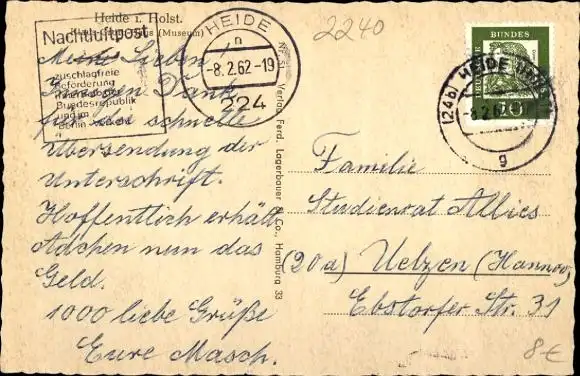 Heide i. Holst.
(Museum)
Nachtluftpost
zuschlagfreie
Beförderung
Bundesrepublik
und im
Berlin-Verkehr
HEIDE
n
-8.2.62-19
224
2240
BUNDES
DEUTSCHE
10
(24b) HEIDE
-8.2.62
g
Meine Lieben
Innigen Dank
für die schnelle
Übersendung der
Unterschrift.
Hoffentlich erhält
Adchen nun das
Geld.
1000 liebe Grüße
Eure Masch.
Verlag Ferd. Lagerbauer & Co., Hamburg 33
Familie
Studienrat Allies
(20a) Uelzen (Hannov.)
Ebstorfer Str. 31
8€